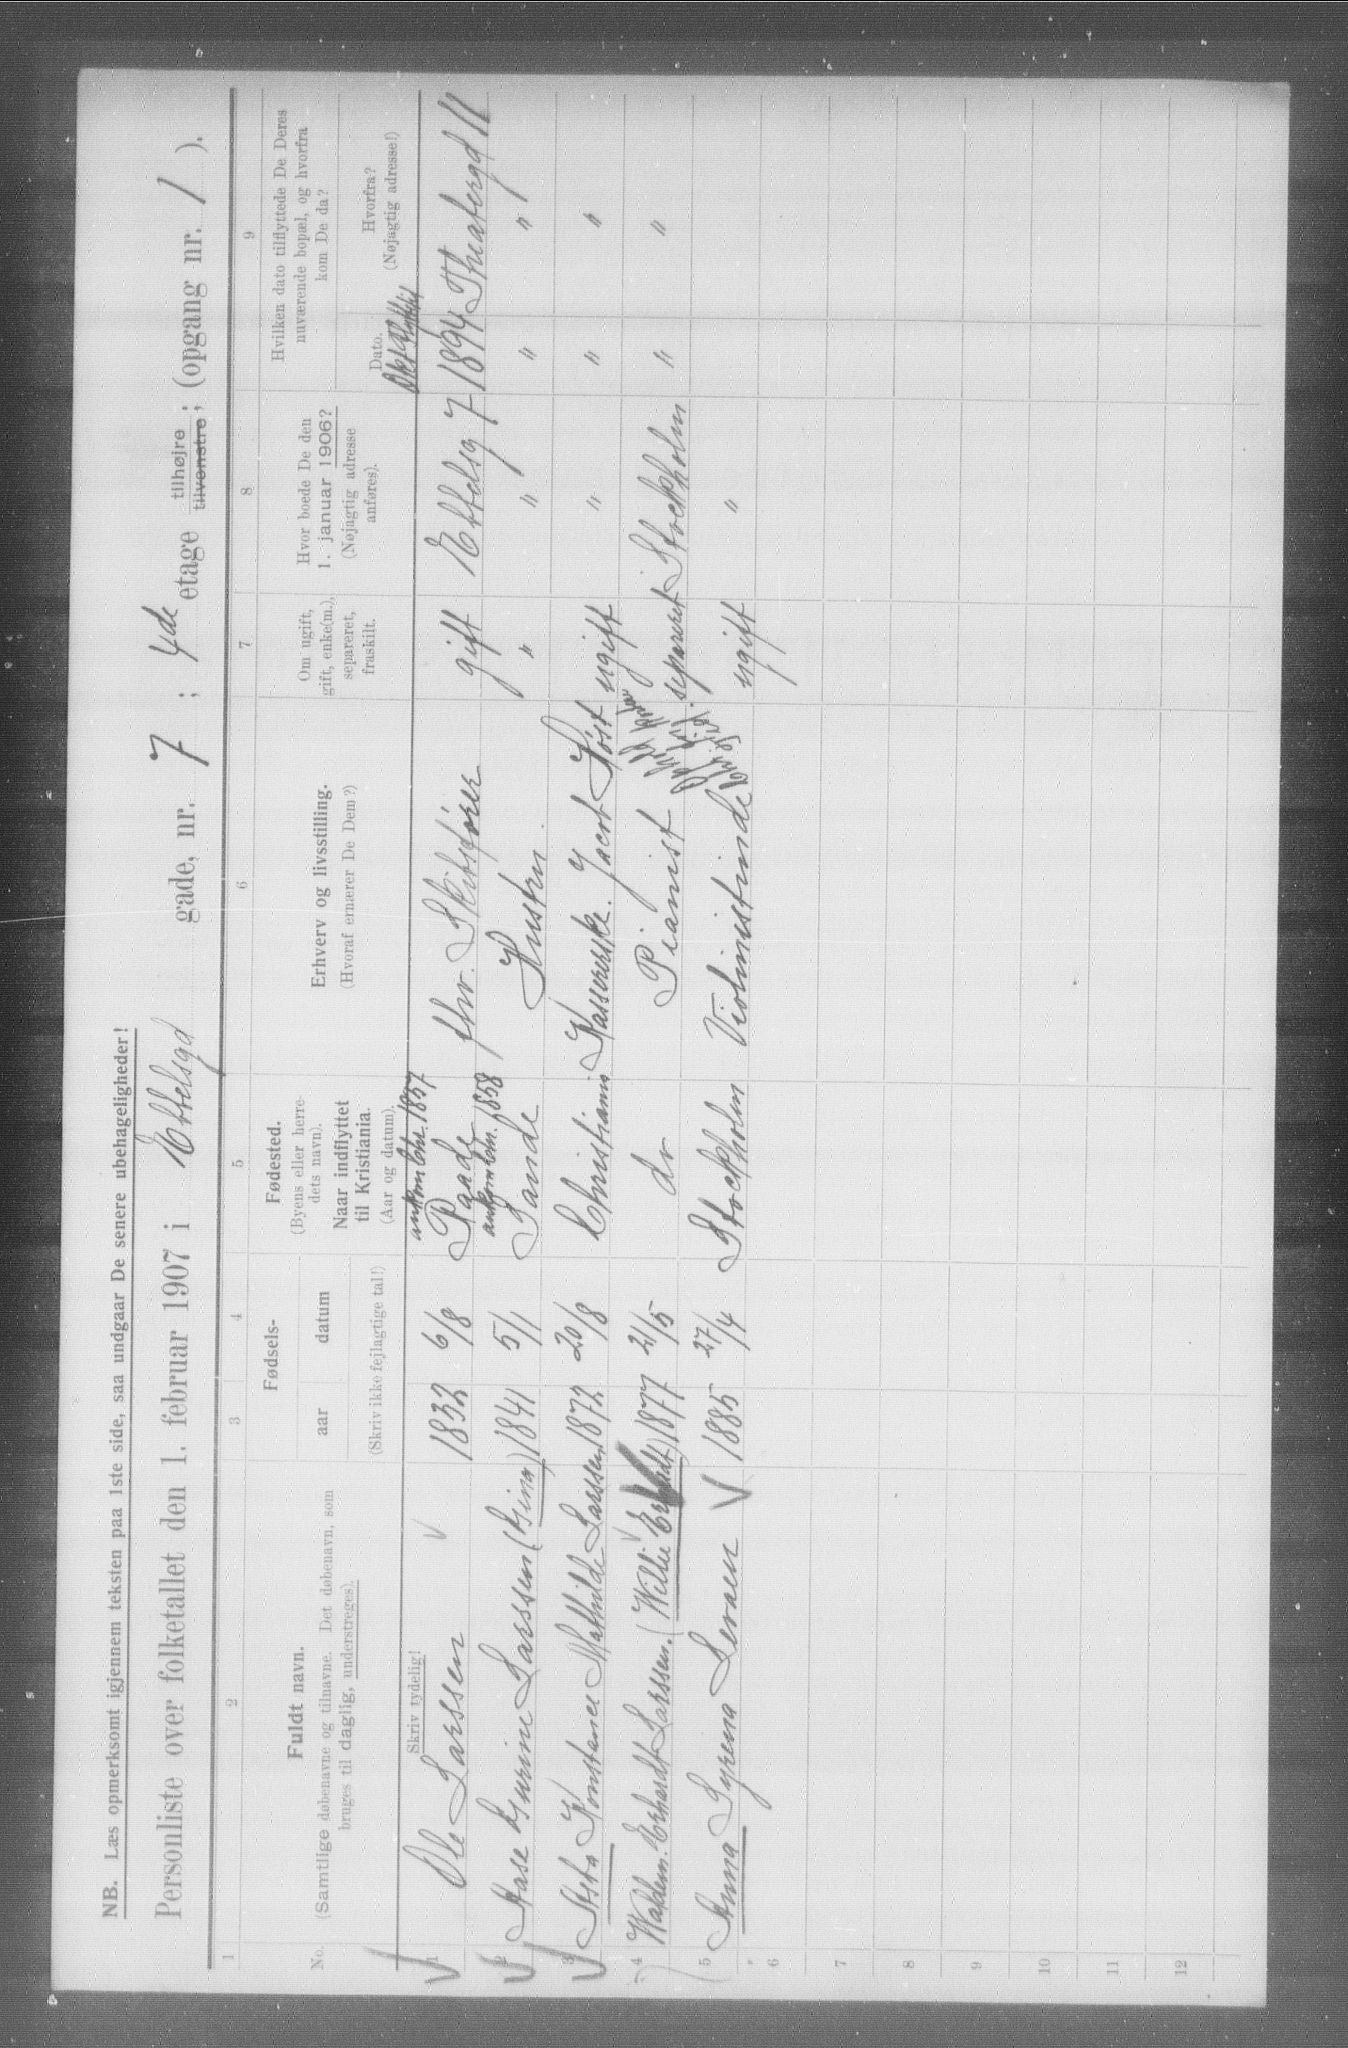 NB. Læs opmerksomt igjennem teksten paa 1ste side, saa undgaar De senere ubehageligheder!
Personliste over folketallet den 1. februar 1907 i Ebbelsgd gade, nr. 7 ; 4de etage tilhøjre tilvenstre; (opgang nr. 1 ).
1 2 3 4 5 6 7 8 9
No.
Fuldt navn.
(Samtlige døbenavne og tilnavne. Det døbenavn, som
bruges til daglig, understreges).
Fødsels-
aar datum
(Skriv ikke fejlagtige tal!)
Fødested.
(Byens eller herre-
dets navn).
Naar indflyttet
til Kristiania.
(Aar og datum).
Erhverv og livsstilling.
(Hvoraf ernærer De Dem?)
Om ugift,
gift, enke(m.),
separeret,
fraskilt.
Hvor boede De den
1. januar 1906?
(Nøjagtig adresse
anføres).
Hvilken dato tilflyttede De Deres
nuværende bopæl, og hvorfra
kom De da?
Dato.
Hvorfra?
(Nøjagtig adresse!)
Skriv tydelig!
ankom 1857
1 Ole Larssen 1832 6/8 Raade fhv. Skibsfører gift Ebbelsg 7 1894 Theatergd 11
1858
2 Aase Gurine Larssen 1841 5/1 Sande Hustru " " " "
3 Asta Konstance Mathilde Larssen 1872 20/8 Christiania Kassererske. Jacob Høst ugift " " "
4 Waldem. Erhardt Larssen. (Willie Erhardt) 1877 21/5 do Pianist separeret Stockholm " "
5 Anna Syrena 1885 27/4 Stockholm Violinistinde ugift "
6
7
8
9
10
11
12